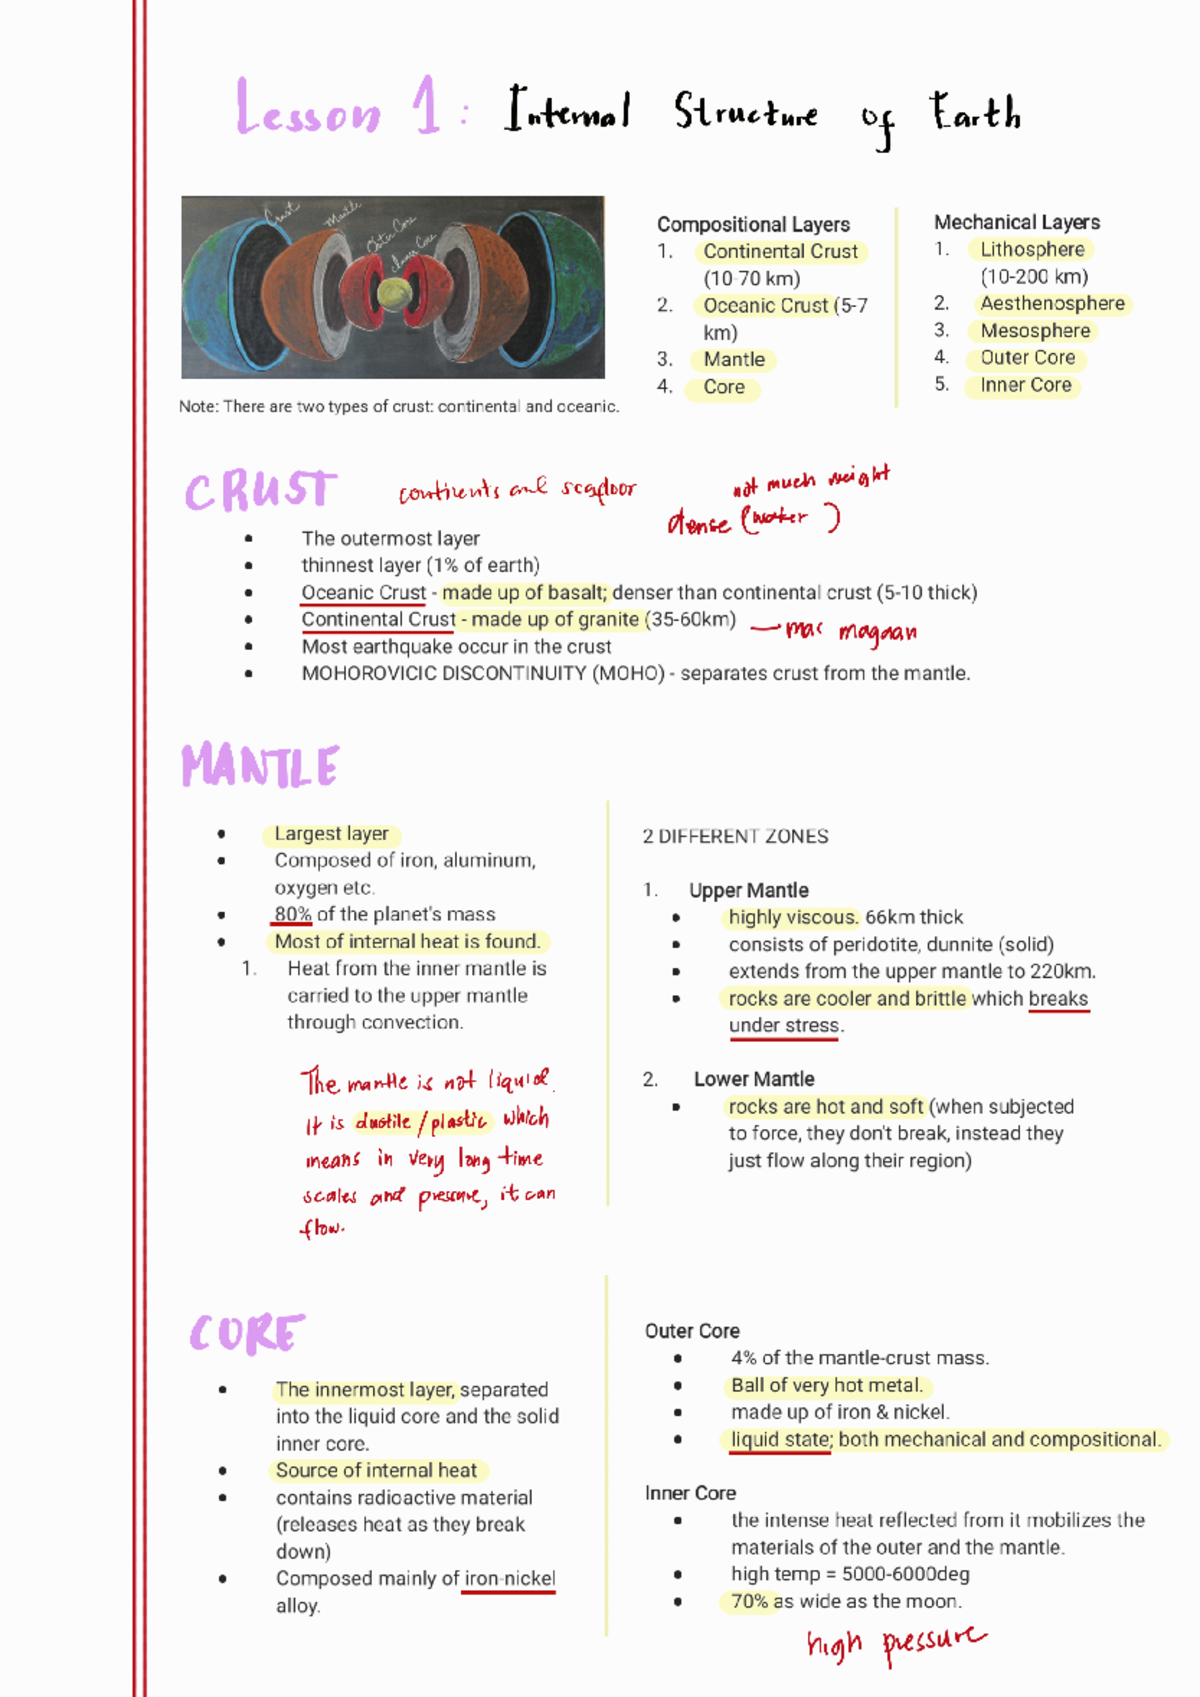 Lesson 1: Internal Structure of Earth
Crust
Mantle
Outer Core
Inner Core
Note: There are two types of crust: continental and oceanic.
Compositional Layers
1. Continental Crust
(10-70 km)
2. Oceanic Crust (5-7
km)
3. Mantle
4. Core
Mechanical Layers
1. Lithosphere
(10-200 km)
2. Aesthenosphere
3. Mesosphere
4. Outer Core
5. Inner Core
CRUST
continents and seafloor
not much weight
dense (water)
• The outermost layer
• thinnest layer (1% of earth)
• Oceanic Crust - made up of basalt; denser than continental crust (5-10 thick)
• Continental Crust - made up of granite (35-60km)
— mac magaan
• Most earthquake occur in the crust
• MOHOROVICIC DISCONTINUITY (MOHO) - separates crust from the mantle.
MANTLE
• Largest layer
• Composed of iron, aluminum,
oxygen etc.
• 80% of the planet's mass
• Most of internal heat is found.
1. Heat from the inner mantle is
carried to the upper mantle
through convection.
The mantle is not liquid.
It is ductile/plastic which
means in very long time
scales and pressure, it can
flow.
2 DIFFERENT ZONES
1. Upper Mantle
• highly viscous. 66km thick
• consists of peridotite, dunnite (solid)
• extends from the upper mantle to 220km.
• rocks are cooler and brittle which breaks
under stress.
2. Lower Mantle
• rocks are hot and soft (when subjected
to force, they don't break, instead they
just flow along their region)
CORE
• The innermost layer, separated
into the liquid core and the solid
inner core.
• Source of internal heat
• contains radioactive material
(releases heat as they break
down)
• Composed mainly of iron-nickel
alloy.
Outer Core
• 4% of the mantle-crust mass.
• Ball of very hot metal.
• made up of iron & nickel.
• liquid state; both mechanical and compositional.
Inner Core
• the intense heat reflected from it mobilizes the
materials of the outer and the mantle.
• high temp = 5000-6000deg
• 70% as wide as the moon.
high pressure